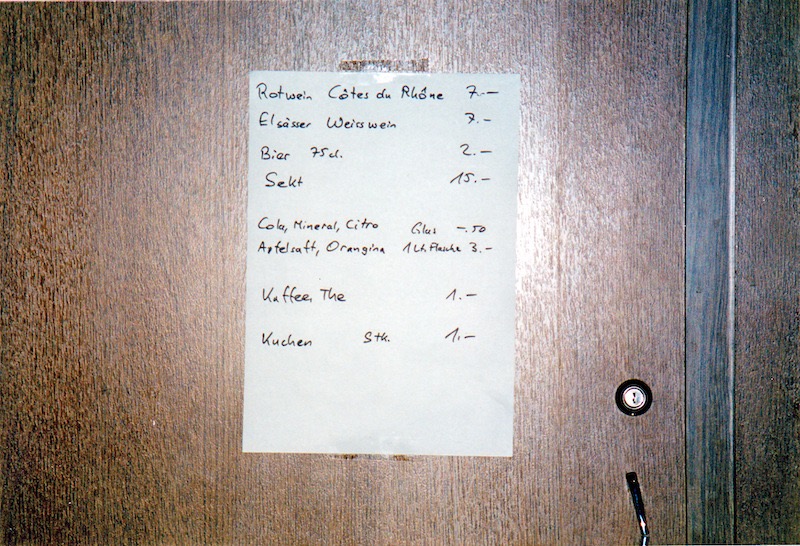 Rotwein Côtes du Rhône 7.-
Elsässer Weisswein 7.-
Bier 75cl. 2.-
Sekt 15.-
Cola, Mineral, Citro Glas -.50
Apfelsaft, Orangina 1 Lt. Flasche 3.-
Kaffee, The 1.-
Kuchen Stk. 1.-